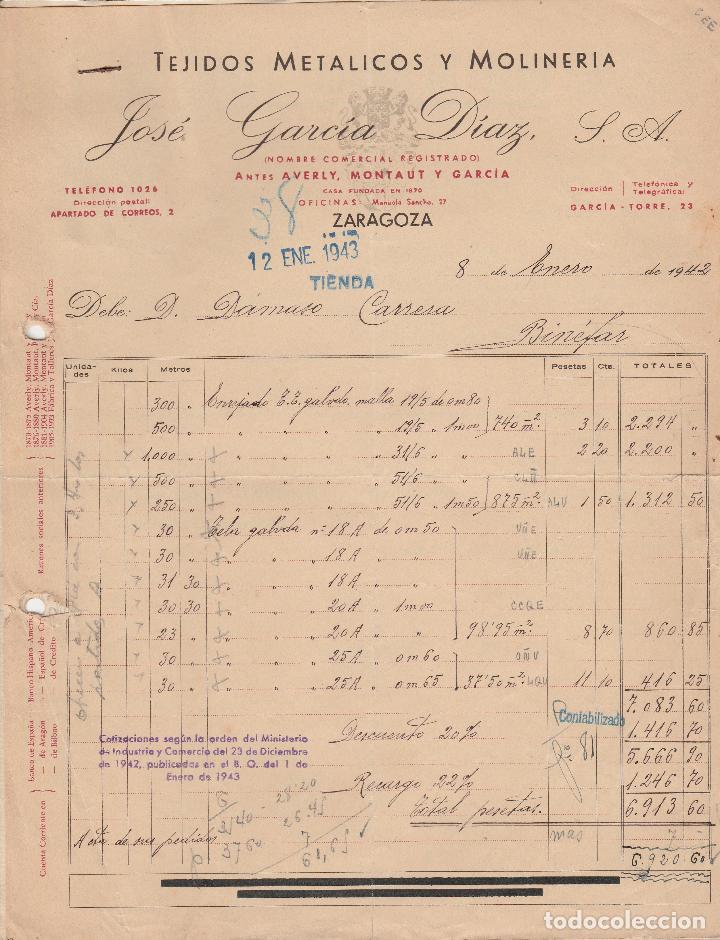 TEJIDOS METALICOS Y MOLINERIA
José García Díaz, S. A.
(NOMBRE COMERCIAL REGISTRADO)
ANTES AVERLY, MONTAUT Y GARCÍA
CASA FUNDADA EN 1870
OFICINAS: Manuela Sancho, 27
ZARAGOZA
TELÉFONO 1026
Dirección postal:
APARTADO DE CORREOS, 2
Dirección Telefónica y Telegráfica:
GARCÍA - TORRE, 23
12 ENE. 1943
TIENDA
8 de Enero de 1942
Debe: D. Dámaso Carrera
Binéfar
Unidades Kilos Metros Pesetas Cts. TOTALES
300 " Enrejado T.T. galvdo. malla 19/5 de 0m80
500 " " " " 19/5 " 1m00 740 m². 3 10 2.294 "
1,000 " " " " 31/6 " " ALE 2 20 2.200 "
500 " " " " 51/6 " " CLÑ
250 " " " " 51/6 " 1m50 875 m². ALU 1 50 1.312 50
30 " Tela galvda nº 18 A de 0m50 UÑE
30 " " " " 18 A " " UÑE
31 30 " " " 18 A " "
30 30 " " " 20 A " 1m00 CCQE
23 " " " " 20 A " " 98'95 m². 8 70 860 85
30 " " " " 25 A " 0m60 OÑU
30 " " " " 25 A " 0m65 37'50 m². 11 10 416 25
7.083 60
Descuento 20% 1.416 70
5.666 90
Recargo 22% 1.246 70
Total pesetas. 6.913 60
mas 7 "
6.920 60
Contabilizado
81
Cotizaciones según la orden del Ministerio
de Industria y Comercio del 23 de Diciembre
de 1942, publicadas en el B. O. del 1 de
Enero de 1943
28-20
26.45
7
61,65
2140
3760
Razones sociales anteriores
1870-1875 Averly, Montaut
1876-1880 Averly, Montaut, y Cía.
1881-1904 Averly, Montaut y García
Cuenta Corriente en
Banco de España
— de Aragón
— de Bilbao
Banco Hispano Americano
— Español de Crédito
— de Crédito